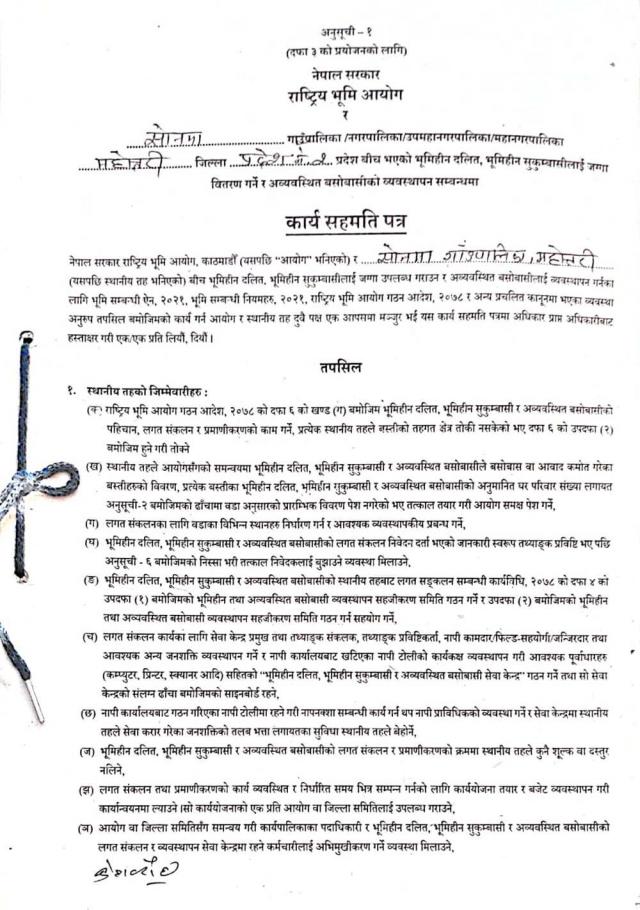 अनुसूची – १
(दफा ३ को प्रयोजनको लागि)
नेपाल सरकार
राष्ट्रिय भूमि आयोग
र
सोनमा गाउँपालिका/नगरपालिका/उपमहानगरपालिका/महानगरपालिका
महोत्तरी जिल्ला प्रदेश नं. २ प्रदेश बीच भएको भूमिहीन दलित, भूमिहीन सुकुम्बासीलाई जग्गा
वितरण गर्ने र अव्यवस्थित बसोबासीको व्यवस्थापन सम्बन्धमा
कार्य सहमति पत्र
नेपाल सरकार राष्ट्रिय भूमि आयोग, काठमाडौँ (यसपछि "आयोग" भनिएको) र सोनमा गाउँपालिका, महोत्तरी
(यसपछि स्थानीय तह भनिएको) बीच भूमिहीन दलित, भूमिहीन सुकुम्बासीलाई जग्गा उपलब्ध गराउन र अव्यवस्थित बसोबासीलाई व्यवस्थापन गर्नका
लागि भूमि सम्बन्धी ऐन, २०२१, भूमि सम्बन्धी नियमहरु, २०२१, राष्ट्रिय भूमि आयोग गठन आदेश, २०७८ र अन्य प्रचलित कानूनमा भएका व्यवस्था
अनुरुप तपसिल बमोजिमको कार्य गर्न आयोग र स्थानीय तह दुवै पक्ष एक आपसमा मञ्जुर भई यस कार्य सहमति पत्रमा अधिकार प्राप्त अधिकारीबाट
हस्ताक्षर गरी एक/एक प्रति लियौं, दियौं ।
तपसिल
१. स्थानीय तहको जिम्मेवारीहरु :
(क) राष्ट्रिय भूमि आयोग गठन आदेश, २०७८ को दफा ६ को खण्ड (ग) बमोजिम भूमिहीन दलित, भूमिहीन सुकुम्बासी र अव्यवस्थित बसोबासीको
पहिचान, लगत संकलन र प्रमाणीकरणको काम गर्ने, प्रत्येक स्थानीय तहले बस्तीको तहगत क्षेत्र तोकी नसकेको भए दफा ६ को उपदफा (२)
बमोजिम हुने गरी तोक्ने
(ख) स्थानीय तहले आयोगसँगको समन्वयमा भूमिहीन दलित, भूमिहीन सुकुम्बासी र अव्यवस्थित बसोबासीले बसोबास वा आवाद कमोत गरेका
बस्तीहरुको विवरण, प्रत्येक बस्तीका भूमिहीन दलित, भूमिहीन सुकुम्बासी र अव्यवस्थित बसोबासीको अनुमानित घर परिवार संख्या लगायत
अनुसूची-२ बमोजिमको ढाँचामा वडा अनुसारको प्रारम्भिक विवरण पेश नगरेको भए तत्काल तयार गरी आयोग समक्ष पेश गर्ने,
(ग) लगत संकलनका लागि वडाका विभिन्न स्थानहरु निर्धारण गर्न र आवश्यक व्यवस्थापकीय प्रबन्ध गर्ने,
(घ) भूमिहीन दलित, भूमिहीन सुकुम्बासी र अव्यवस्थित बसोबासीको लगत संकलन निवेदन दर्ता भएको जानकारी स्वरूप तथ्याङ्क प्रविष्टि भए पछि
अनुसूची - ६ बमोजिमको निस्सा भरी तत्काल निवेदकलाई बुझाउने व्यवस्था मिलाउने,
(ङ) भूमिहीन दलित, भूमिहीन सुकुम्बासी र अव्यवस्थित बसोबासीको स्थानीय तहबाट लगत सङ्कलन सम्बन्धी कार्यविधि, २०७८ को दफा ४ को
उपदफा (१) बमोजिमको भूमिहीन तथा अव्यवस्थित बसोबासी व्यवस्थापन सहजीकरण समिति गठन गर्ने र उपदफा (२) बमोजिमको भूमिहीन
तथा अव्यवस्थित बसोबासी व्यवस्थापन सहजीकरण समिति गठन गर्न सहयोग गर्ने,
(च) लगत संकलन कार्यका लागि सेवा केन्द्र प्रमुख तथा तथ्याङ्क संकलक, तथ्याङ्क प्रविष्टिकर्ता, नापी कामदार/फिल्ड-सहयोगी/जन्जिरदार तथा
आवश्यक अन्य जनशक्ति व्यवस्थापन गर्ने र नापी कार्यालयबाट खटिएका नापी टोलीको कार्यकक्ष व्यवस्थापन गरी आवश्यक पूर्वाधारहरु
(कम्प्युटर, प्रिन्टर, स्क्यानर आदि) सहितको "भूमिहीन दलित, भूमिहीन सुकुम्बासी र अव्यवस्थित बसोबासी सेवा केन्द्र" गठन गर्ने तथा सो सेवा
केन्द्रको संलग्न ढाँचा बमोजिमको साइनबोर्ड रहने,
(छ) नापी कार्यालयबाट गठन गरिएका नापी टोलीमा रहने गरी नापनक्शा सम्बन्धी कार्य गर्न थप नापी प्राविधिकको व्यवस्था गर्ने र सेवा केन्द्रमा स्थानीय
तहले सेवा करार गरेका जनशक्तिको तलब भत्ता लगायतका सुविधा स्थानीय तहले बेहोर्ने,
(ज) भूमिहीन दलित, भूमिहीन सुकुम्बासी र अव्यवस्थित बसोबासीको लगत संकलन र प्रमाणीकरणको क्रममा स्थानीय तहले कुनै शूल्क वा दस्तुर
नलिने,
(झ) लगत संकलन तथा प्रमाणीकरणको कार्य व्यवस्थित र निर्धारित समय भित्र सम्पन्न गर्नको लागि कार्ययोजना तयार र बजेट व्यवस्थापन गरी
कार्यान्वयनमा ल्याउने ।सो कार्ययोजनाको एक प्रति आयोग वा जिल्ला समितिलाई उपलब्ध गराउने,
(ञ) आयोग वा जिल्ला समितिसँग समन्वय गरी कार्यपालिकाका पदाधिकारी र भूमिहीन दलित, भूमिहीन सुकुम्बासी र अव्यवस्थित बसोबासीको
लगत संकलन र व्यवस्थापन सेवा केन्द्रमा रहने कर्मचारीलाई अभिमुखीकरण गर्ने व्यवस्था मिलाउने,